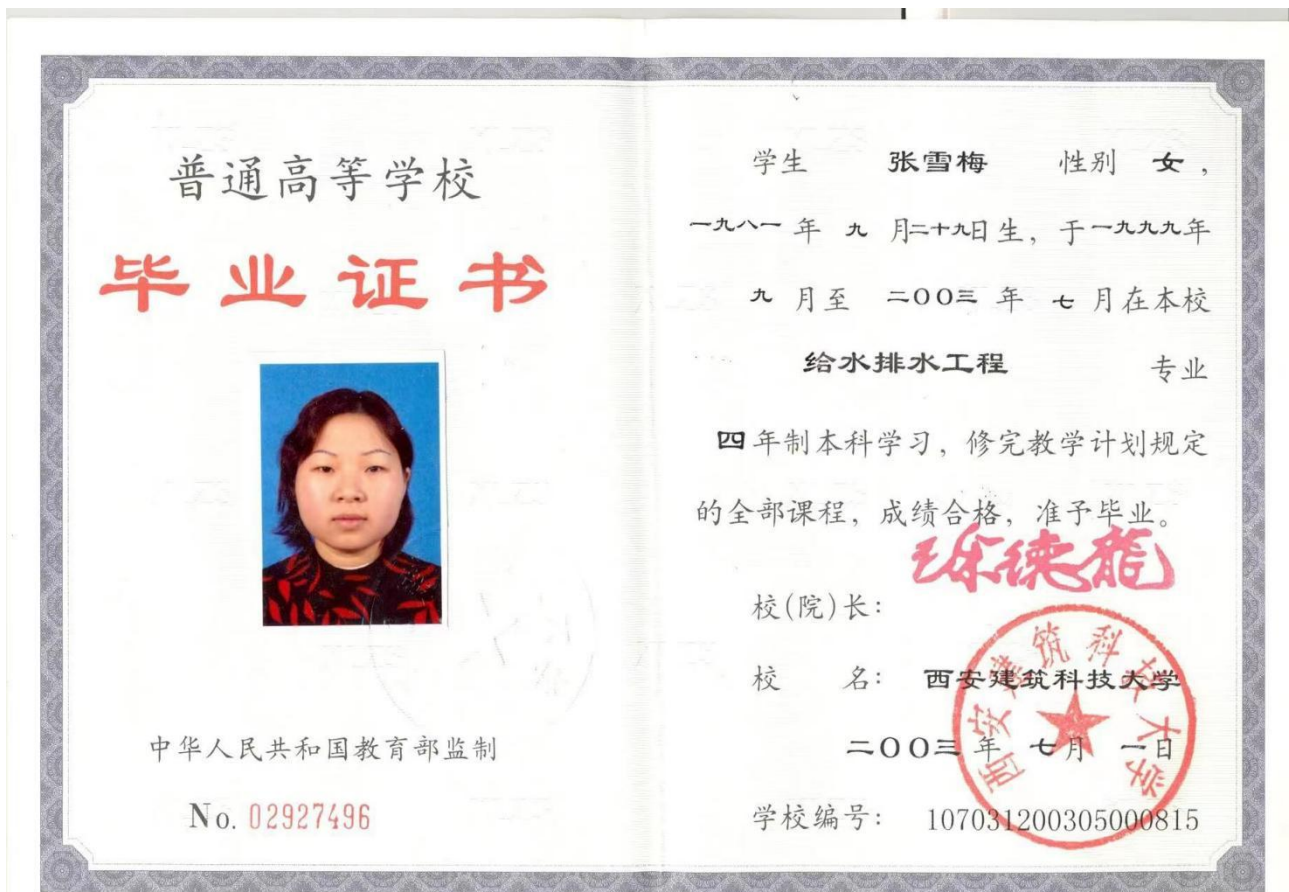 普通高等学校
毕业证书
中华人民共和国教育部监制
No. 02927496
学生 张雪梅 性别 女,
一九八一 年 九 月二十九日生, 于一九九九年
九 月至 二OO三 年 七 月在本校
给水排水工程 专业
四年制本科学习, 修完教学计划规定
的全部课程, 成绩合格, 准予毕业。
校(院)长:
校 名: 西安建筑科技大学
西安建筑科技大学
二OO三 年 七月 一日
学校编号: 107031200305000815